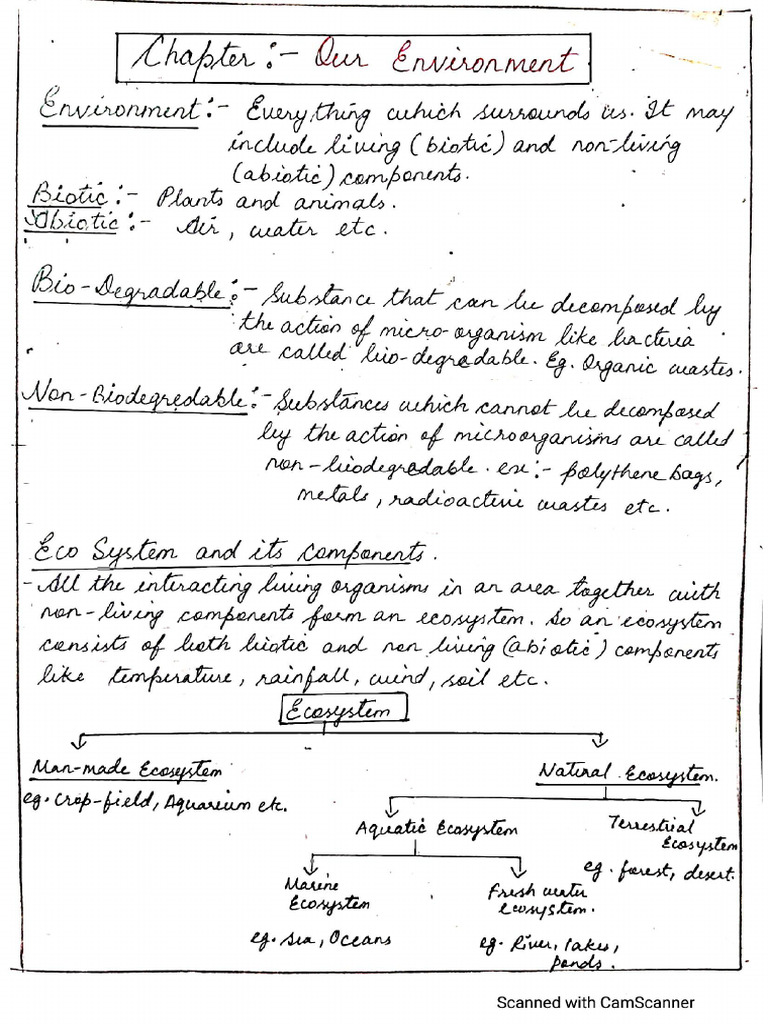 Chapter :- Our Environment
Environment :- Everything which surrounds us. It may
include living (biotic) and non-living
(abiotic) components.
Biotic :- Plants and animals.
Abiotic :- Air, water etc.
Bio-Degradable :- Substance that can be decomposed by
the action of micro-organism like bacteria
are called bio-degradable. Eg. Organic wastes.
Non-Biodegredable :- Substances which cannot be decomposed
by the action of microorganisms are called
non-biodegredable. ex :- polythene bags,
metals, radioactive wastes etc.
Eco System and its components.
- All the interacting living organisms in an area together with
non-living components form an ecosystem. So an ecosystem
consists of both biotic and non living (abiotic) components
like temperature, rainfall, wind, soil etc.
Ecosystem
Man-made Ecosystem
Natural Ecosystem.
eg. Crop-field, Aquarium etc.
Aquatic Ecosystem
Terrestrial
Ecosystem
eg. forest, desert.
Marine
Ecosystem
Fresh water
ecosystem.
eg. Sea, Oceans
eg. River, lakes,
ponds.
Scanned with CamScanner